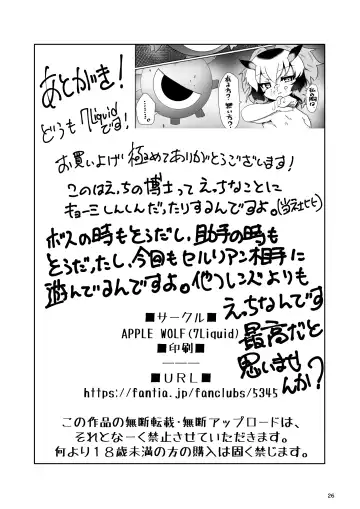 あとがき!
どうも 7Liquid
です!
お買いあげ 極めてありがとうございます!
このはえっちの博士って えっちなことに
キョーミしんしんだったりするんですよ。(当社比)
ボスの時もそうだし、助手の時も
そうだったし、今回もセルリアン相手に
遊んでるんですよ。他フレンズよりも
えっちなんです
最高だと
思いませ
んか?
■サークル■
APPLE WOLF(7Liquid)
■印刷■
―――
■URL■
https://fantia.jp/fanclubs/5345
この作品の無断転載・無断アップロードは、
それとな~く禁止させていただきます。
何より18歳未満の方の購入は固く禁じます。
26